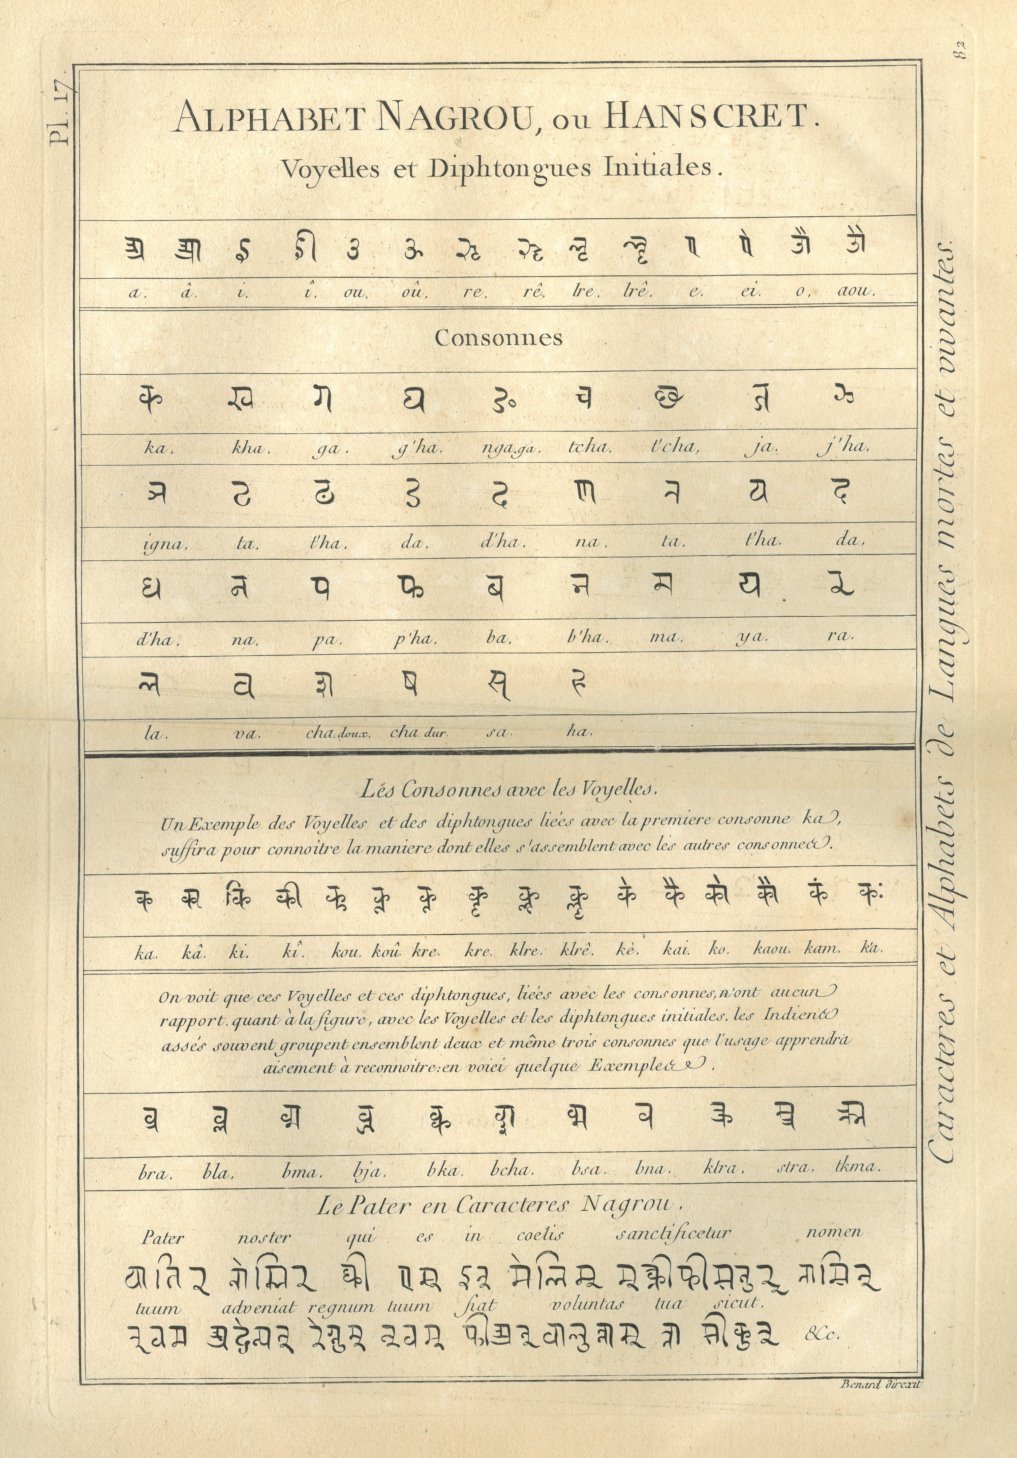 Pl. 17.
82
ALPHABET NAGROU, ou HANSCRET.
Voyelles et Diphtongues Initiales.
अ आ इ ई उ ऊ ऋ ॠ ऌ ॡ ए ऐ ओ औ
a. â. i. î. ou. oû. re. rê. lre. lrê. e. ei. o. aou.
Consonnes
क ख ग घ ङ च छ ज झ
ka. kha. ga. g'ha. nga.ga. tcha. t'cha. ja. j'ha.
ञ ट ठ ड ढ ण त थ द
igna. ta. t'ha. da. d'ha. na. ta. t'ha. da.
ध न प फ ब भ म य र
d'ha. na. pa. p'ha. ba. b'ha. ma. ya. ra.
ल व श ष स ह
la. va. cha.doux. cha.dur. sa. ha.
Lés Consonnes avec les Voyelles.
Un Exemple des Voyelles et des diphtongues liées avec la premiere consonne ka,
suffira pour connoitre la maniere dont elles s'assemblent avec lés autres consonnes.
क का कि की कु कू कृ कॄ कॢ कॣ के कै को कौ कं कः
ka. kâ. ki. kî. kou. koû. kre. kre. klre. klrê. kè. kai. ko. kaou. kam. k'a.
On voit que ces Voyelles et ces diphtongues, liées avec les consonnes, n'ont aucun
rapport, quant à la figure, avec les Voyelles et les diphtongues initiales. les Indiens
assés souvent groupent ensemblent deux et même trois consonnes que l'usage apprendra
aisement à reconnoitre: en voici quelque Exemples.
bra. bla. bma. bja. bka. bcha. bsa. bna. ktra. stra. tkma.
Le Pater en Caracteres Nagrou.
Pater noster qui es in coelis sanctificetur nomen
tuum adveniat regnum tuum fiat voluntas tua sicut.
&c.
Benard direxit
Caracteres et Alphabets de Langues mortes et vivantes.